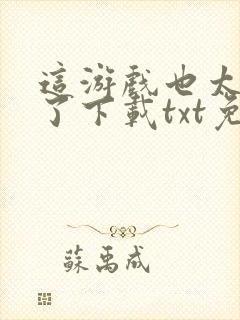 這游戲也太
了下載txt免
蘇禹成